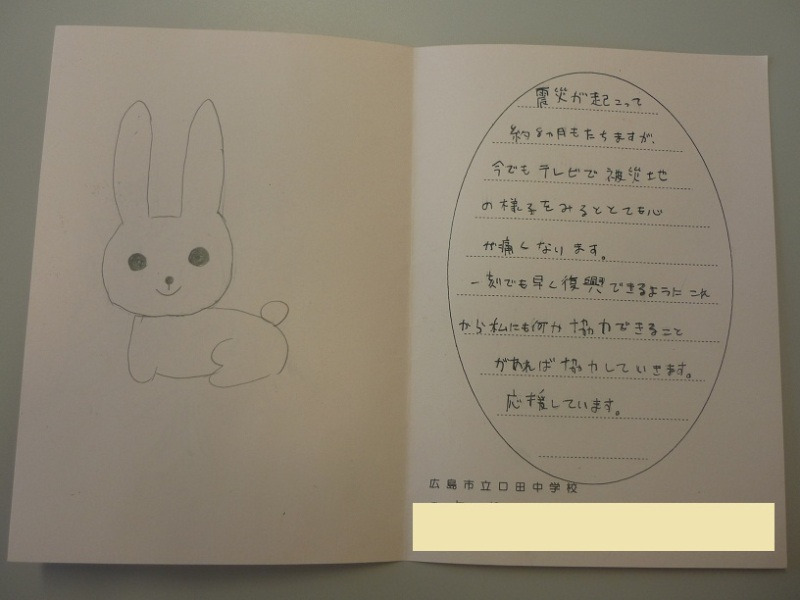 震災が起こって
約8ヵ月もたちますが、
今でもテレビで被災地
の様子をみるととても心
が痛くなります。
一刻でも早く復興できるようにこれ
から私にも何か協力できること
があれば協力していきます。
応援しています。
広島市立口田中学校